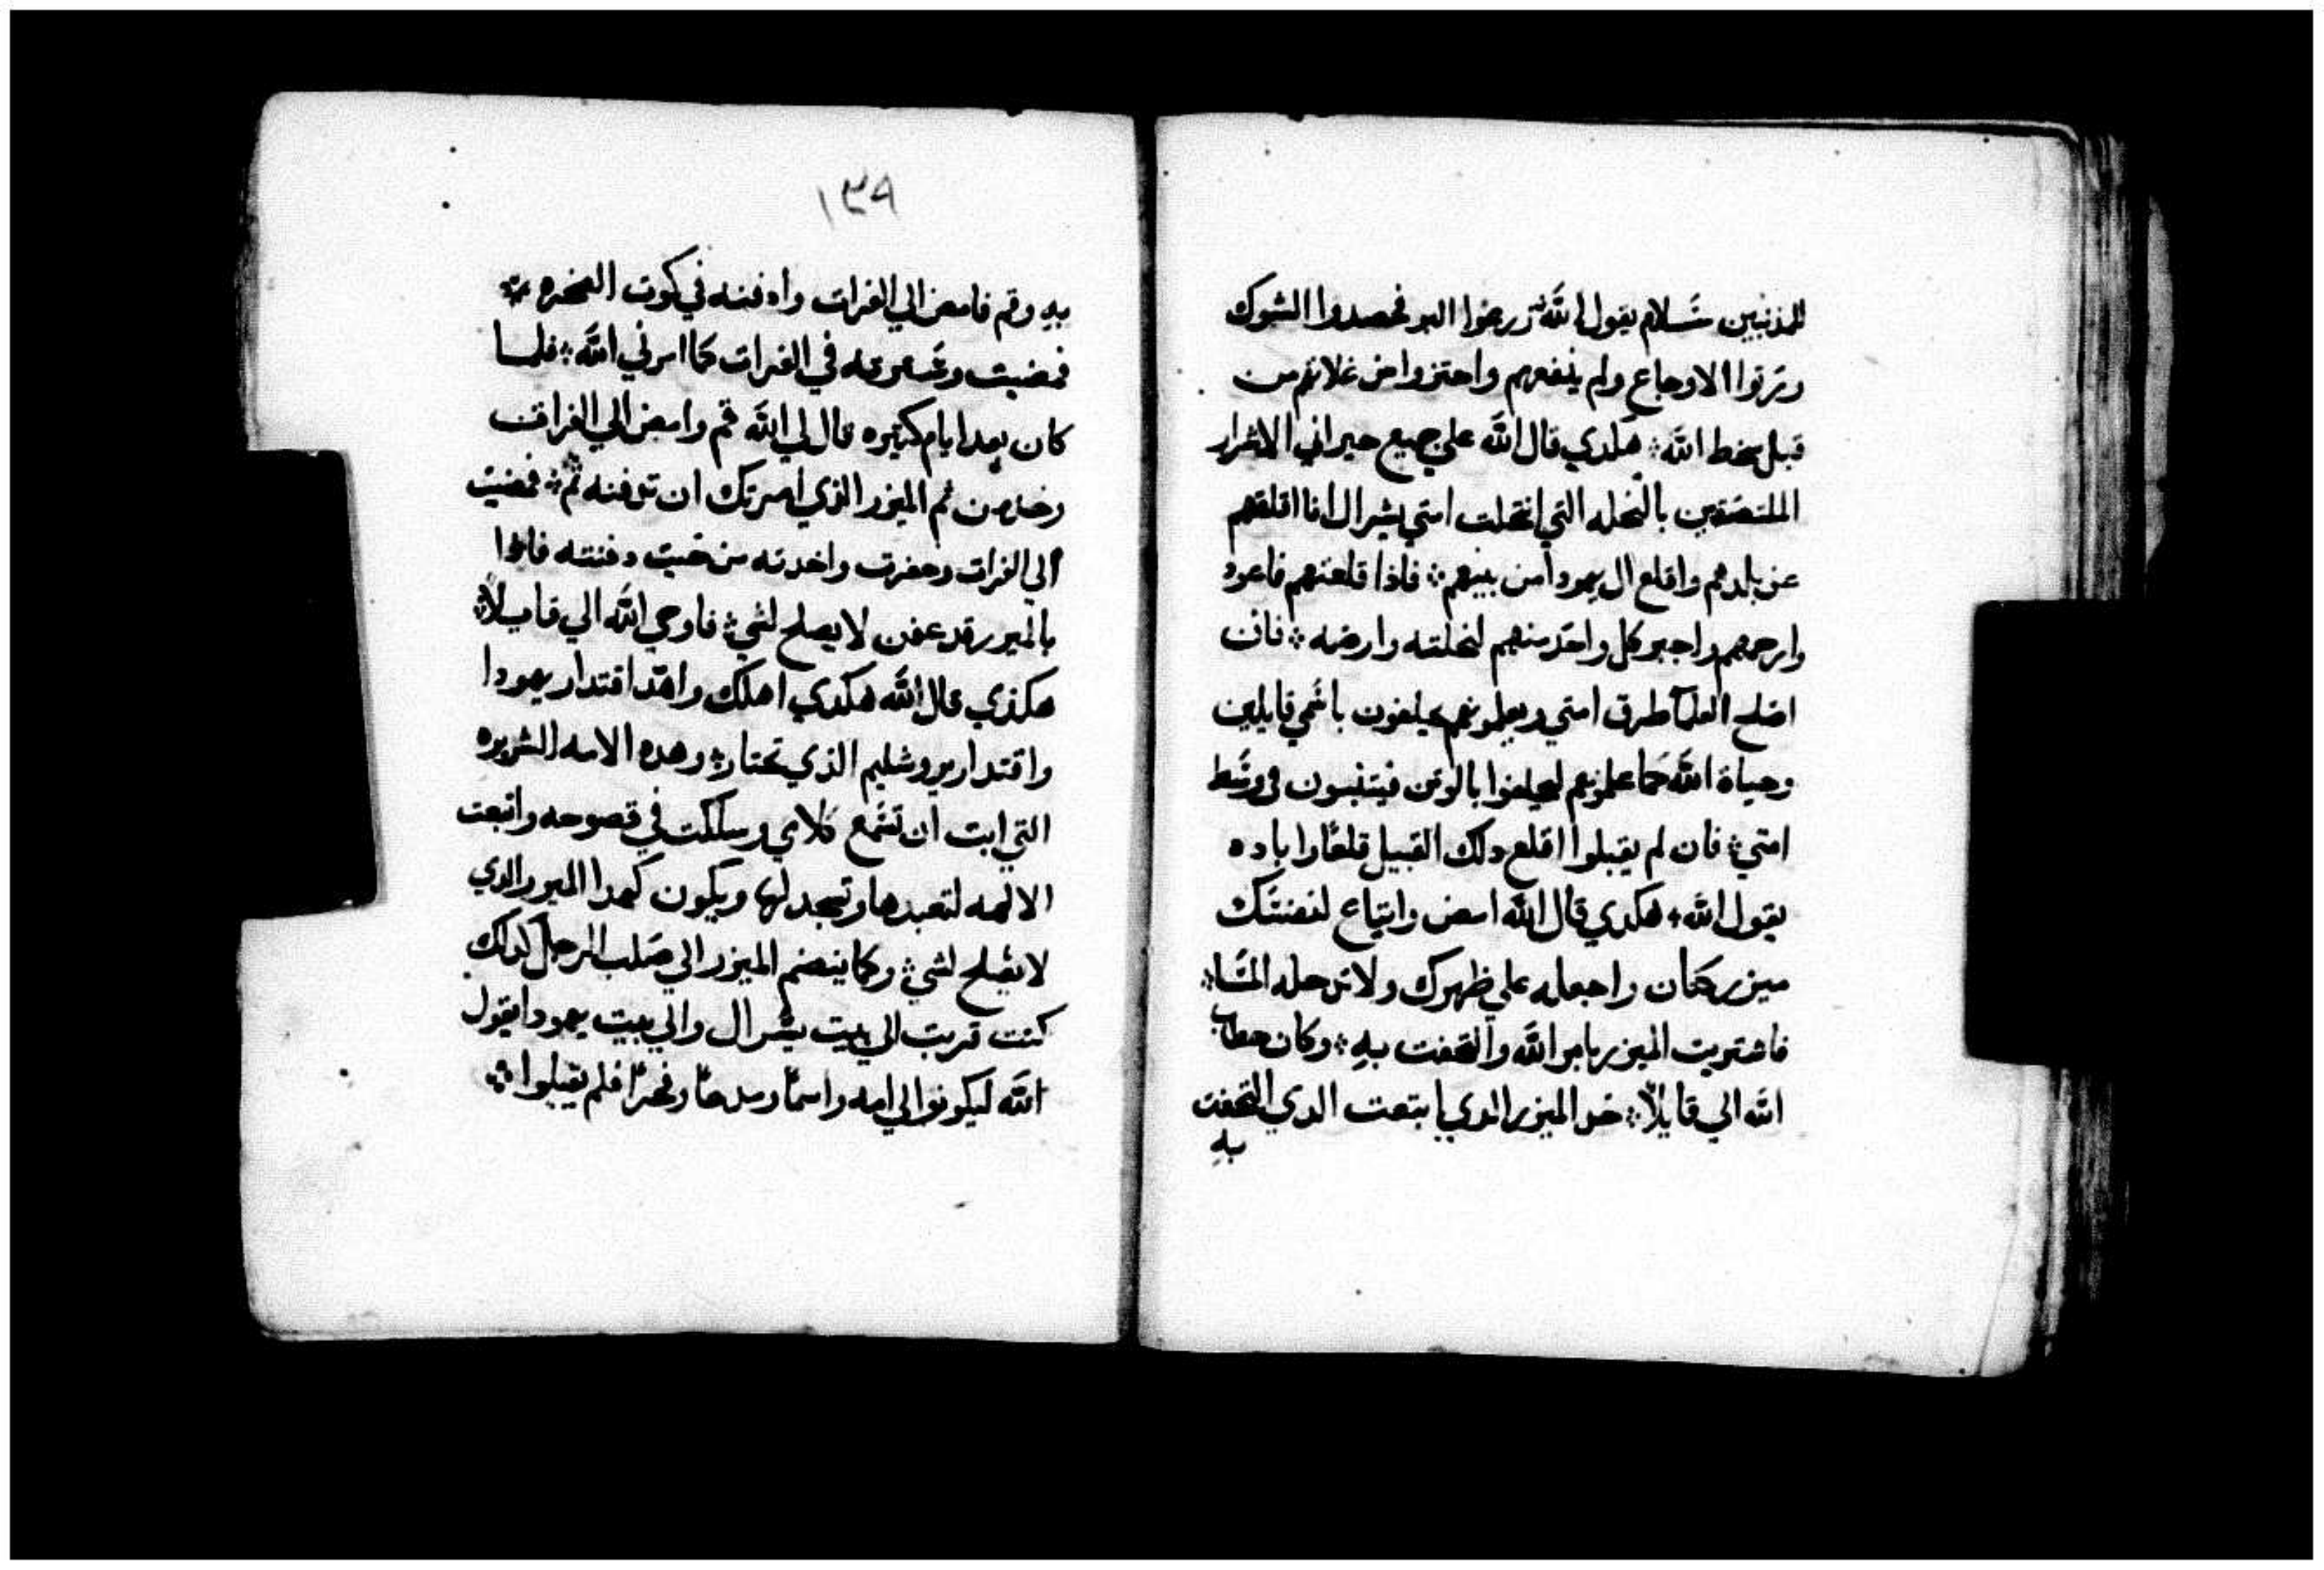 للمذنبين سَلام يقول اللّه ۞ زرعوا البر فحصدوا الشوك
وترتوا الاوجاع ولم ينفعهم واحتزوا من غلاتهم من
قبل سخط اللّه ۞ هكدي قال اللّه علي جميع جيراني الاشرار
الملتصقين بالنحله التي انتحلت امتي يشرال انا اقلعهم
عن بلدهم واقلع ال يهودا من بينهم ۞ فاذا قلعتهم فاعود
وارحمهم واجبر كل واحد منهم لنحلته وارضه ۞ فان
اصلح العلما طرق امتي ويعلمونهم يحلفون باسمي قايلين
وحياة اللّه كما علمونهم ليحلفوا بالوثن فيتنبسون في وسَط
امتي ۞ فان لم يقبلوا اقلع دلك القبيل قلعًا واباده
يقول اللّه ۞ هكدي قال اللّه امض وابتاع لنفسَك
ميزر كتان واجعله علي ظهرك ولا تدخله المَا ۞
فاشتريت الميزر بامر اللّه والتحفت بهِ ۞ وكان خطاب
اللّه الي قايلًا ۞ خد الميزر الدي ابتعت الدي التحفت
بهِ
١٣٩
بهِ وقم فامض الي الفرات وادفنه في كوت الصخره ۞
فمضيت وغـ في الفرات كما امرني اللّه ۞ فلما
كان بعد ايام كثيره قال لي اللّه قم وامض الي الفرات
وخد من ثم الميزر الذي امرتك ان تدفنه ثم ۞ فمضيت
الي الفرات وحفرت واخدته من حيت دفنته فادا
بالميزر قد عفن لا يصلح لشي ۞ فاوحي اللّه الي قايلاً ۞
هكذي قال اللّه هكدي اهلك واهدّ اقتدار يهودا
واقتدار يروشليم الذي تختار ۞ وهده الامه الشريره
التي ابت ان تسَمع كلامي وسلكت في قصوحه واتبعت
الالهه لتعبدها وتسجد لها ويكون كهدا الميزر الدي
لا يصلح لشي ۞ وكما ينضم الميزر الي صَلب الرجل كدلك
كنت قربت الي بيت يشرال والي بيت يهودا يقول
اللّه ليكونوا لي امه واسمًا ومدحًا وفخرًا فلم يقبلوا ۞